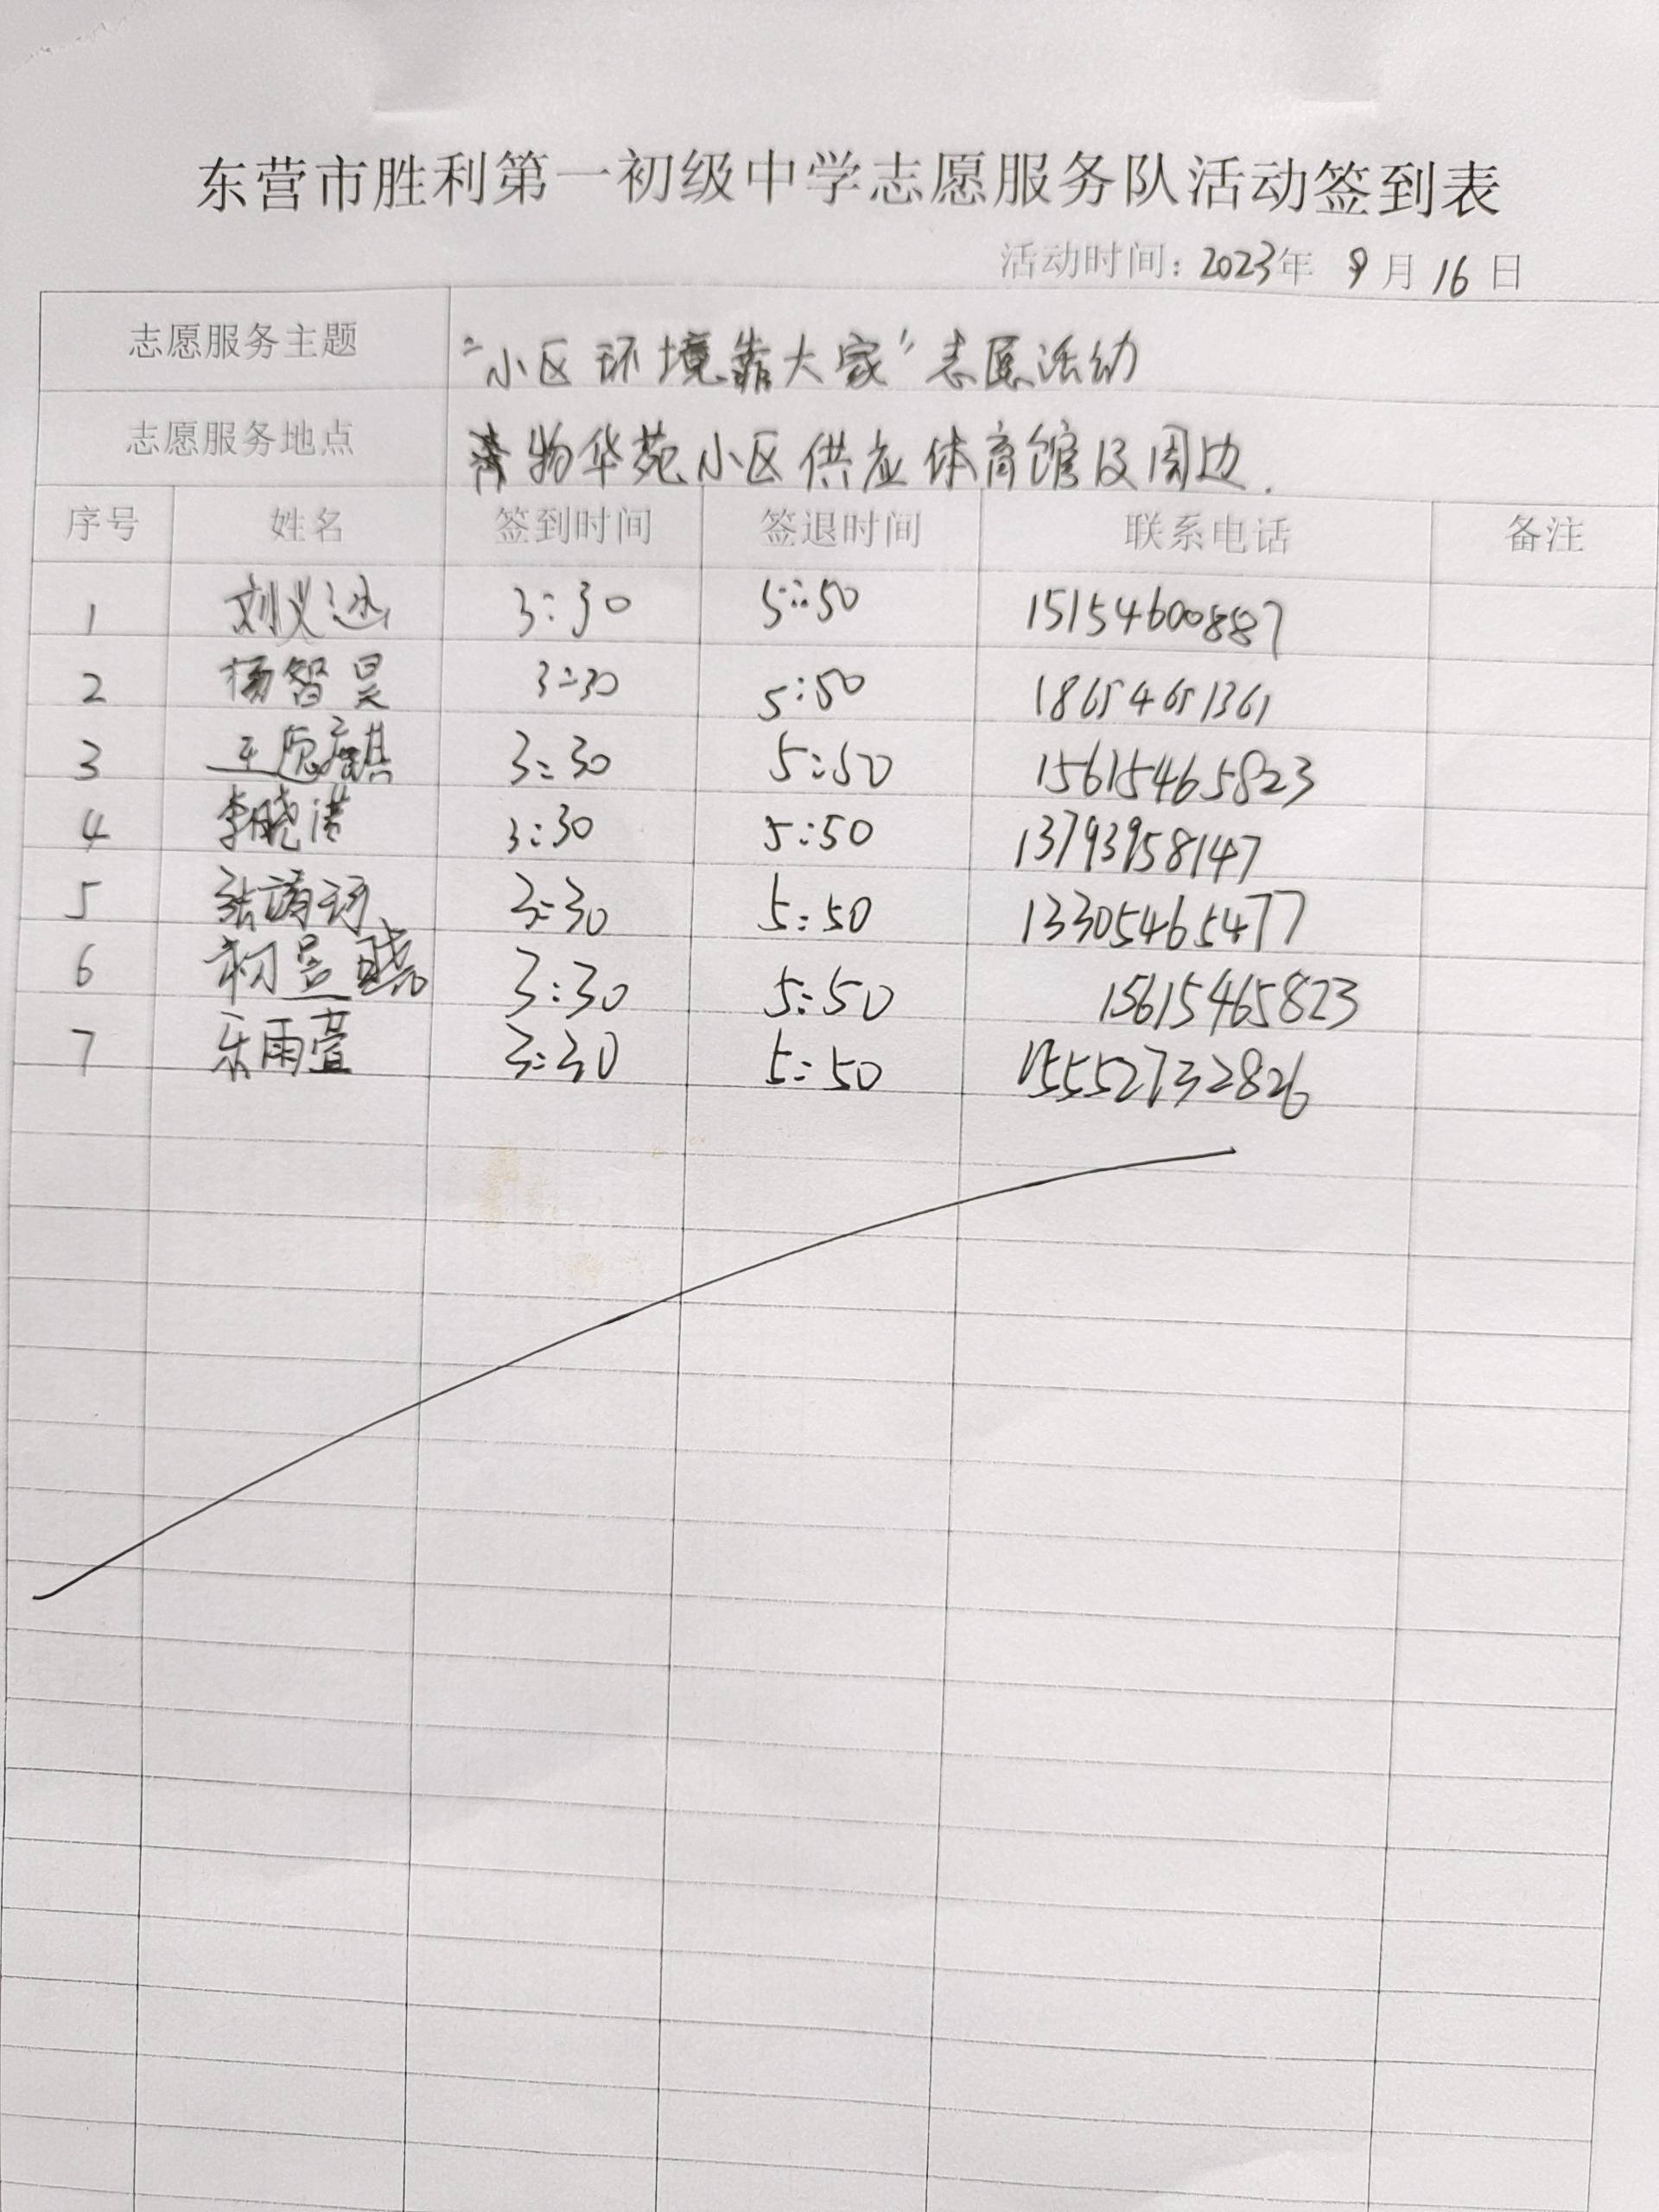 东营市胜利第一初级中学志愿服务队活动签到表
活动时间：2023年 9月16日
志愿服务主题 "小区环境靠大家"志愿活动
志愿服务地点 物华苑小区供应体育馆及周边.
序号 姓名 签到时间 签退时间 联系电话 备注
1 刘义 3:30 5:50 15154600887
2 杨智昊 3:30 5:50 18654651361
3 王 3:30 5:50 15615465823
4 李晓 3:30 5:50 13793958147
5 张 3:30 5:50 13305465477
6 初昱晓 3:30 5:50 15615465823
7 乐雨萱 3:30 5:50 15552732826